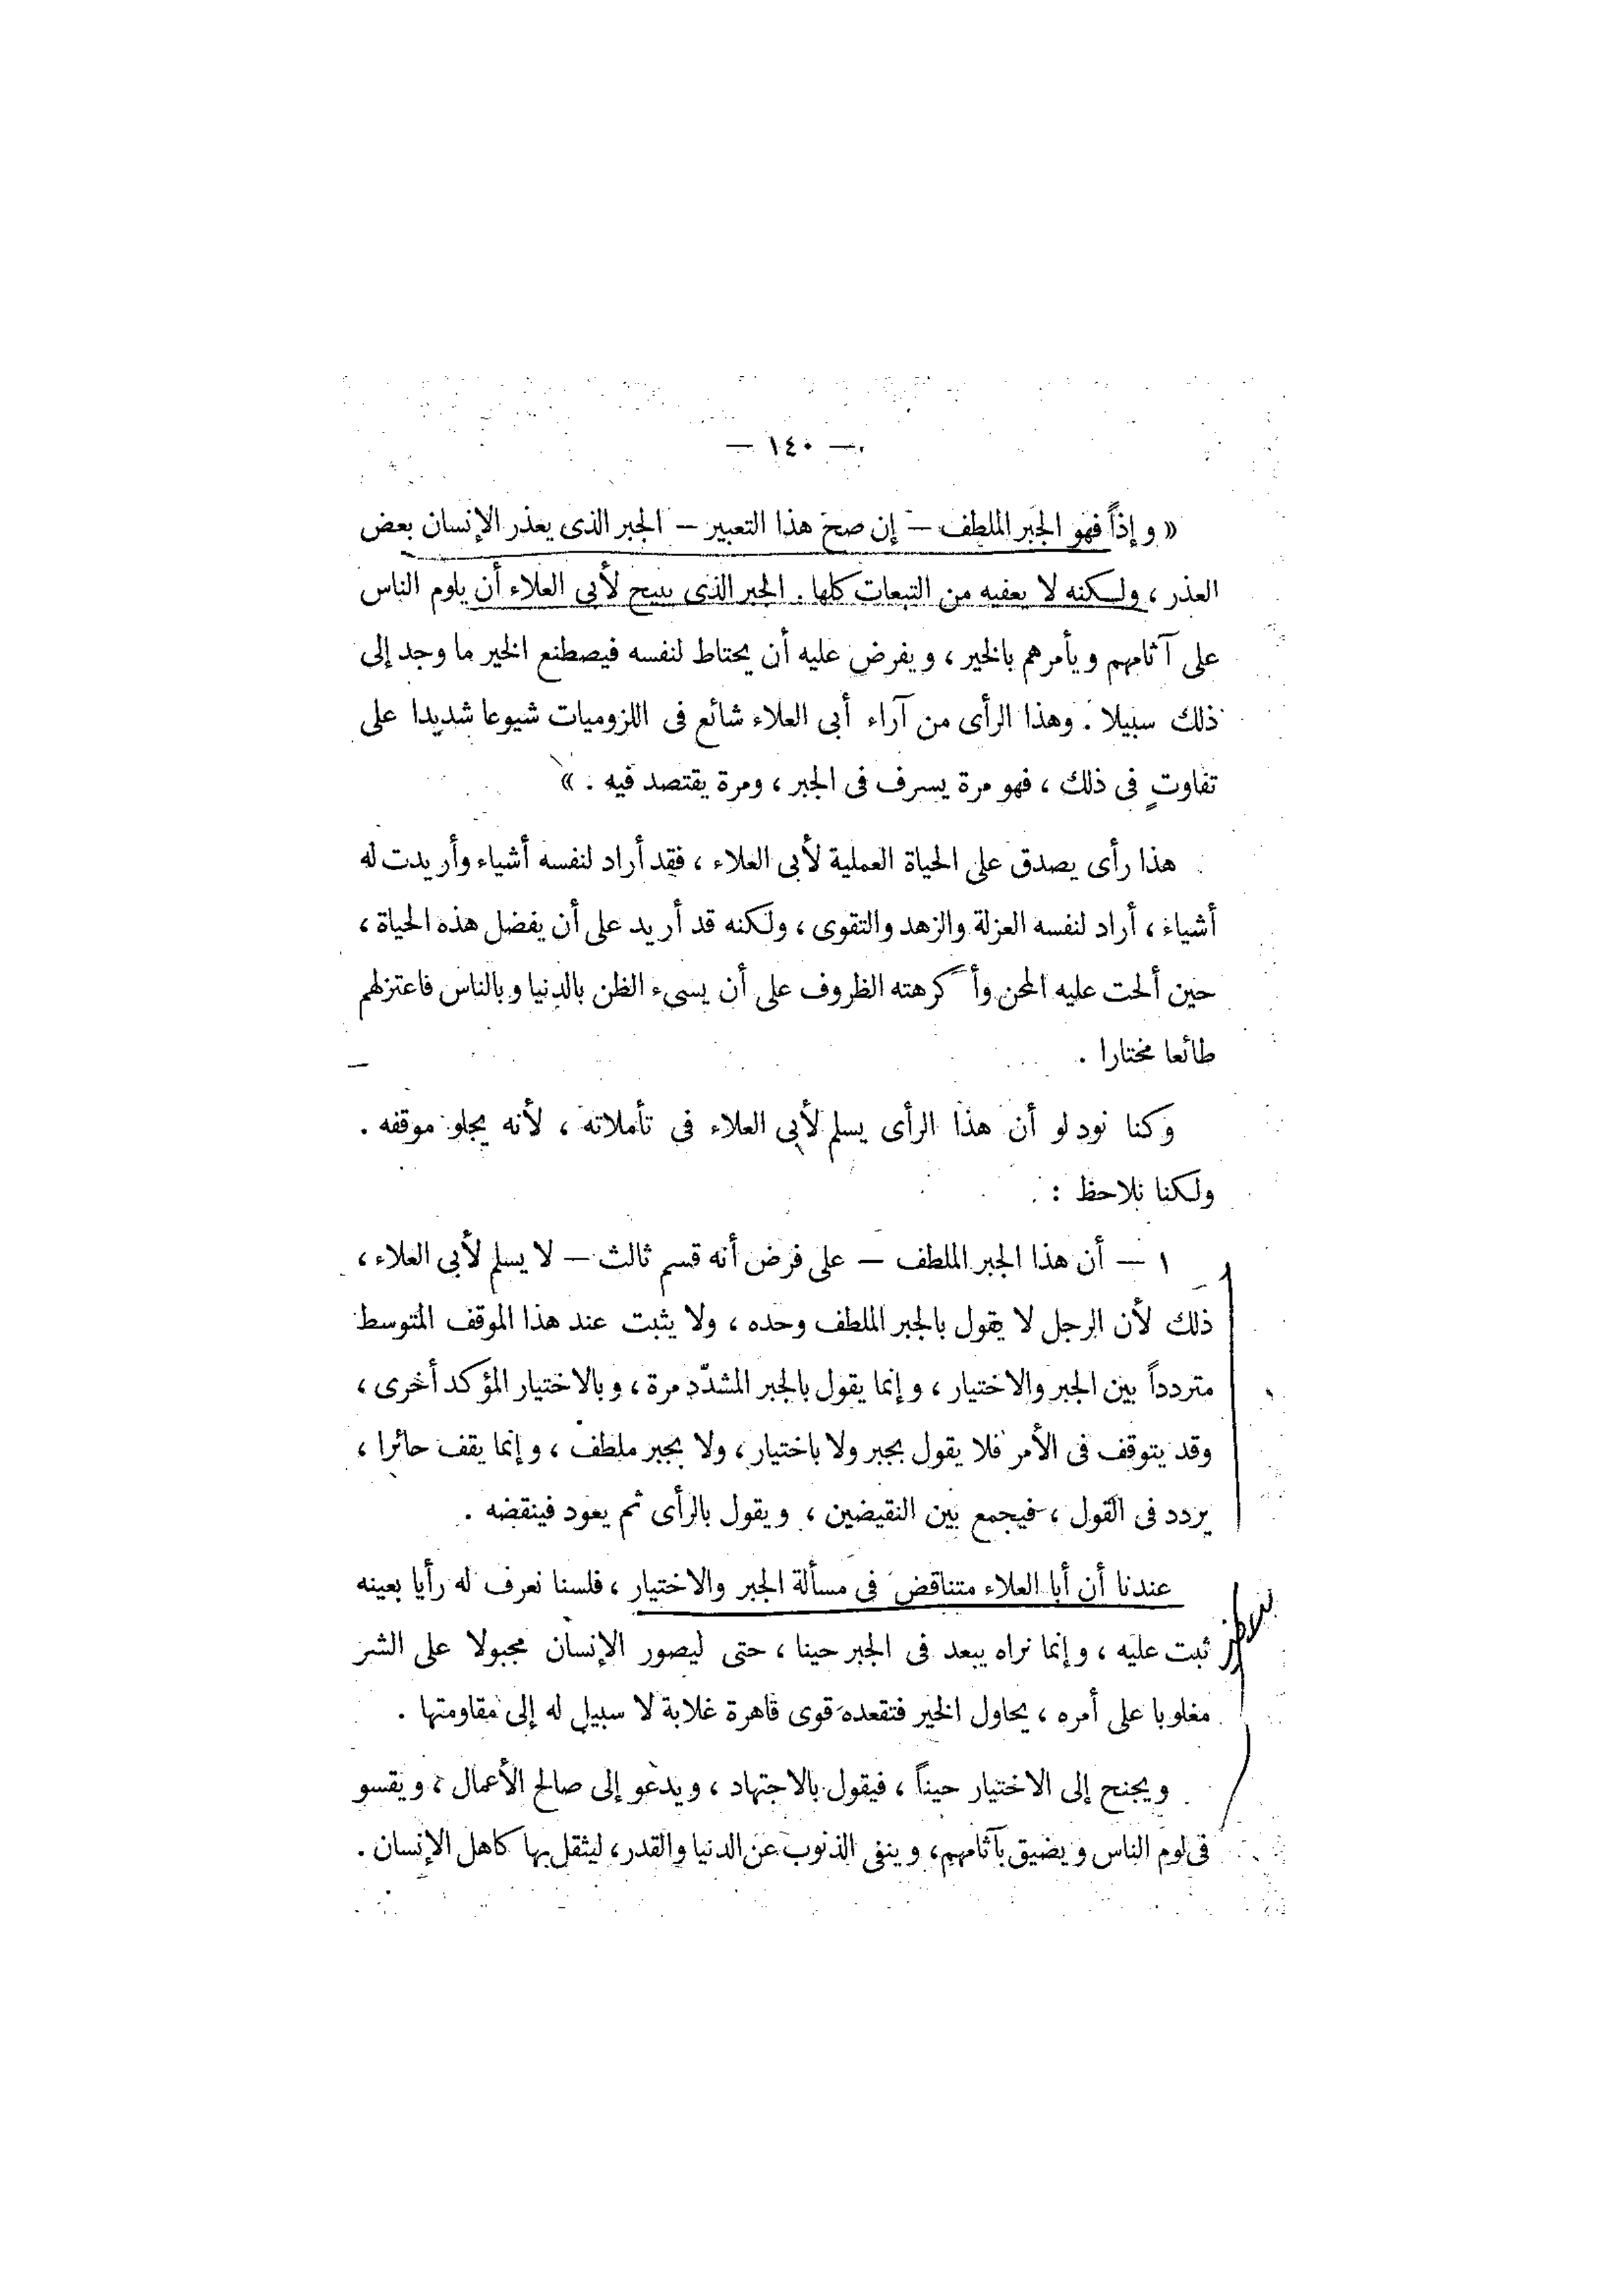 — ١٤٠ —
« وإذاً فهو الجبر الملطف — إن صح هذا التعبير — الجبر الذى يعذر الإنسان بعض
العذر ، ولكنه لا يعفيه من التبعات كلها . الجبر الذى يبيح لأبى العلاء أن يلوم الناس
على آثامهم ويأمرهم بالخير ، ويفرض عليه أن يحتاط لنفسه فيصطنع الخير ما وجد إلى
ذلك سبيلا . وهذا الرأى من آراء أبى العلاء شائع فى اللزوميات شيوعا شديدا على
تفاوتٍ فى ذلك ، فهو مرة يسرف فى الجبر ، ومرة يقتصد فيه . »
هذا رأى يصدق على الحياة العملية لأبى العلاء ، فقد أراد لنفسه أشياء وأريدت له
أشياء ، أراد لنفسه العزلة والزهد والتقوى ، ولكنه قد أريد على أن يفضل هذه الحياة ،
حين ألحت عليه المحن وأكرهته الظروف على أن يسىء الظن بالدنيا وبالناس فاعتزلهم
طائعا مختارا .
وكنا نود لو أن هذا الرأى يسلم لأبى العلاء فى تأملاته ، لأنه يجلو موقفه .
ولكنا نلاحظ :
١ — أن هذا الجبر الملطف — على فرض أنه قسم ثالث — لا يسلم لأبى العلاء ،
ذلك لأن الرجل لا يقول بالجبر الملطف وحده ، ولا يثبت عند هذا الموقف المتوسط
متردداً بين الجبر والاختيار ، وإنما يقول بالجبر المشدّد مرة ، وبالاختيار المؤكد أخرى ،
وقد يتوقف فى الأمر فلا يقول بجبر ولا باختيار ، ولا بجبر ملطف ، وإنما يقف حائرا ،
يردد فى القول ، فيجمع بين النقيضين ، ويقول بالرأى ثم يعود فينقضه .
عندنا أن أبا العلاء متناقض فى مسألة الجبر والاختيار ، فلسنا نعرف له رأيا بعينه
ثبت عليه ، وإنما نراه يبعد فى الجبر حينا ، حتى ليصور الإنسان مجبولا على الشر
مغلوبا على أمره ، يحاول الخير فتقعده قوى قاهرة غلابة لا سبيل له إلى مقاومتها .
ويجنح إلى الاختيار حيناً ، فيقول بالاجتهاد ، ويدعو إلى صالح الأعمال ، ويقسو
فى لوم الناس ويضيق بآثامهم ، وينفى الذنوب عن الدنيا والقدر ، ليثقل بها كاهل الإنسان .